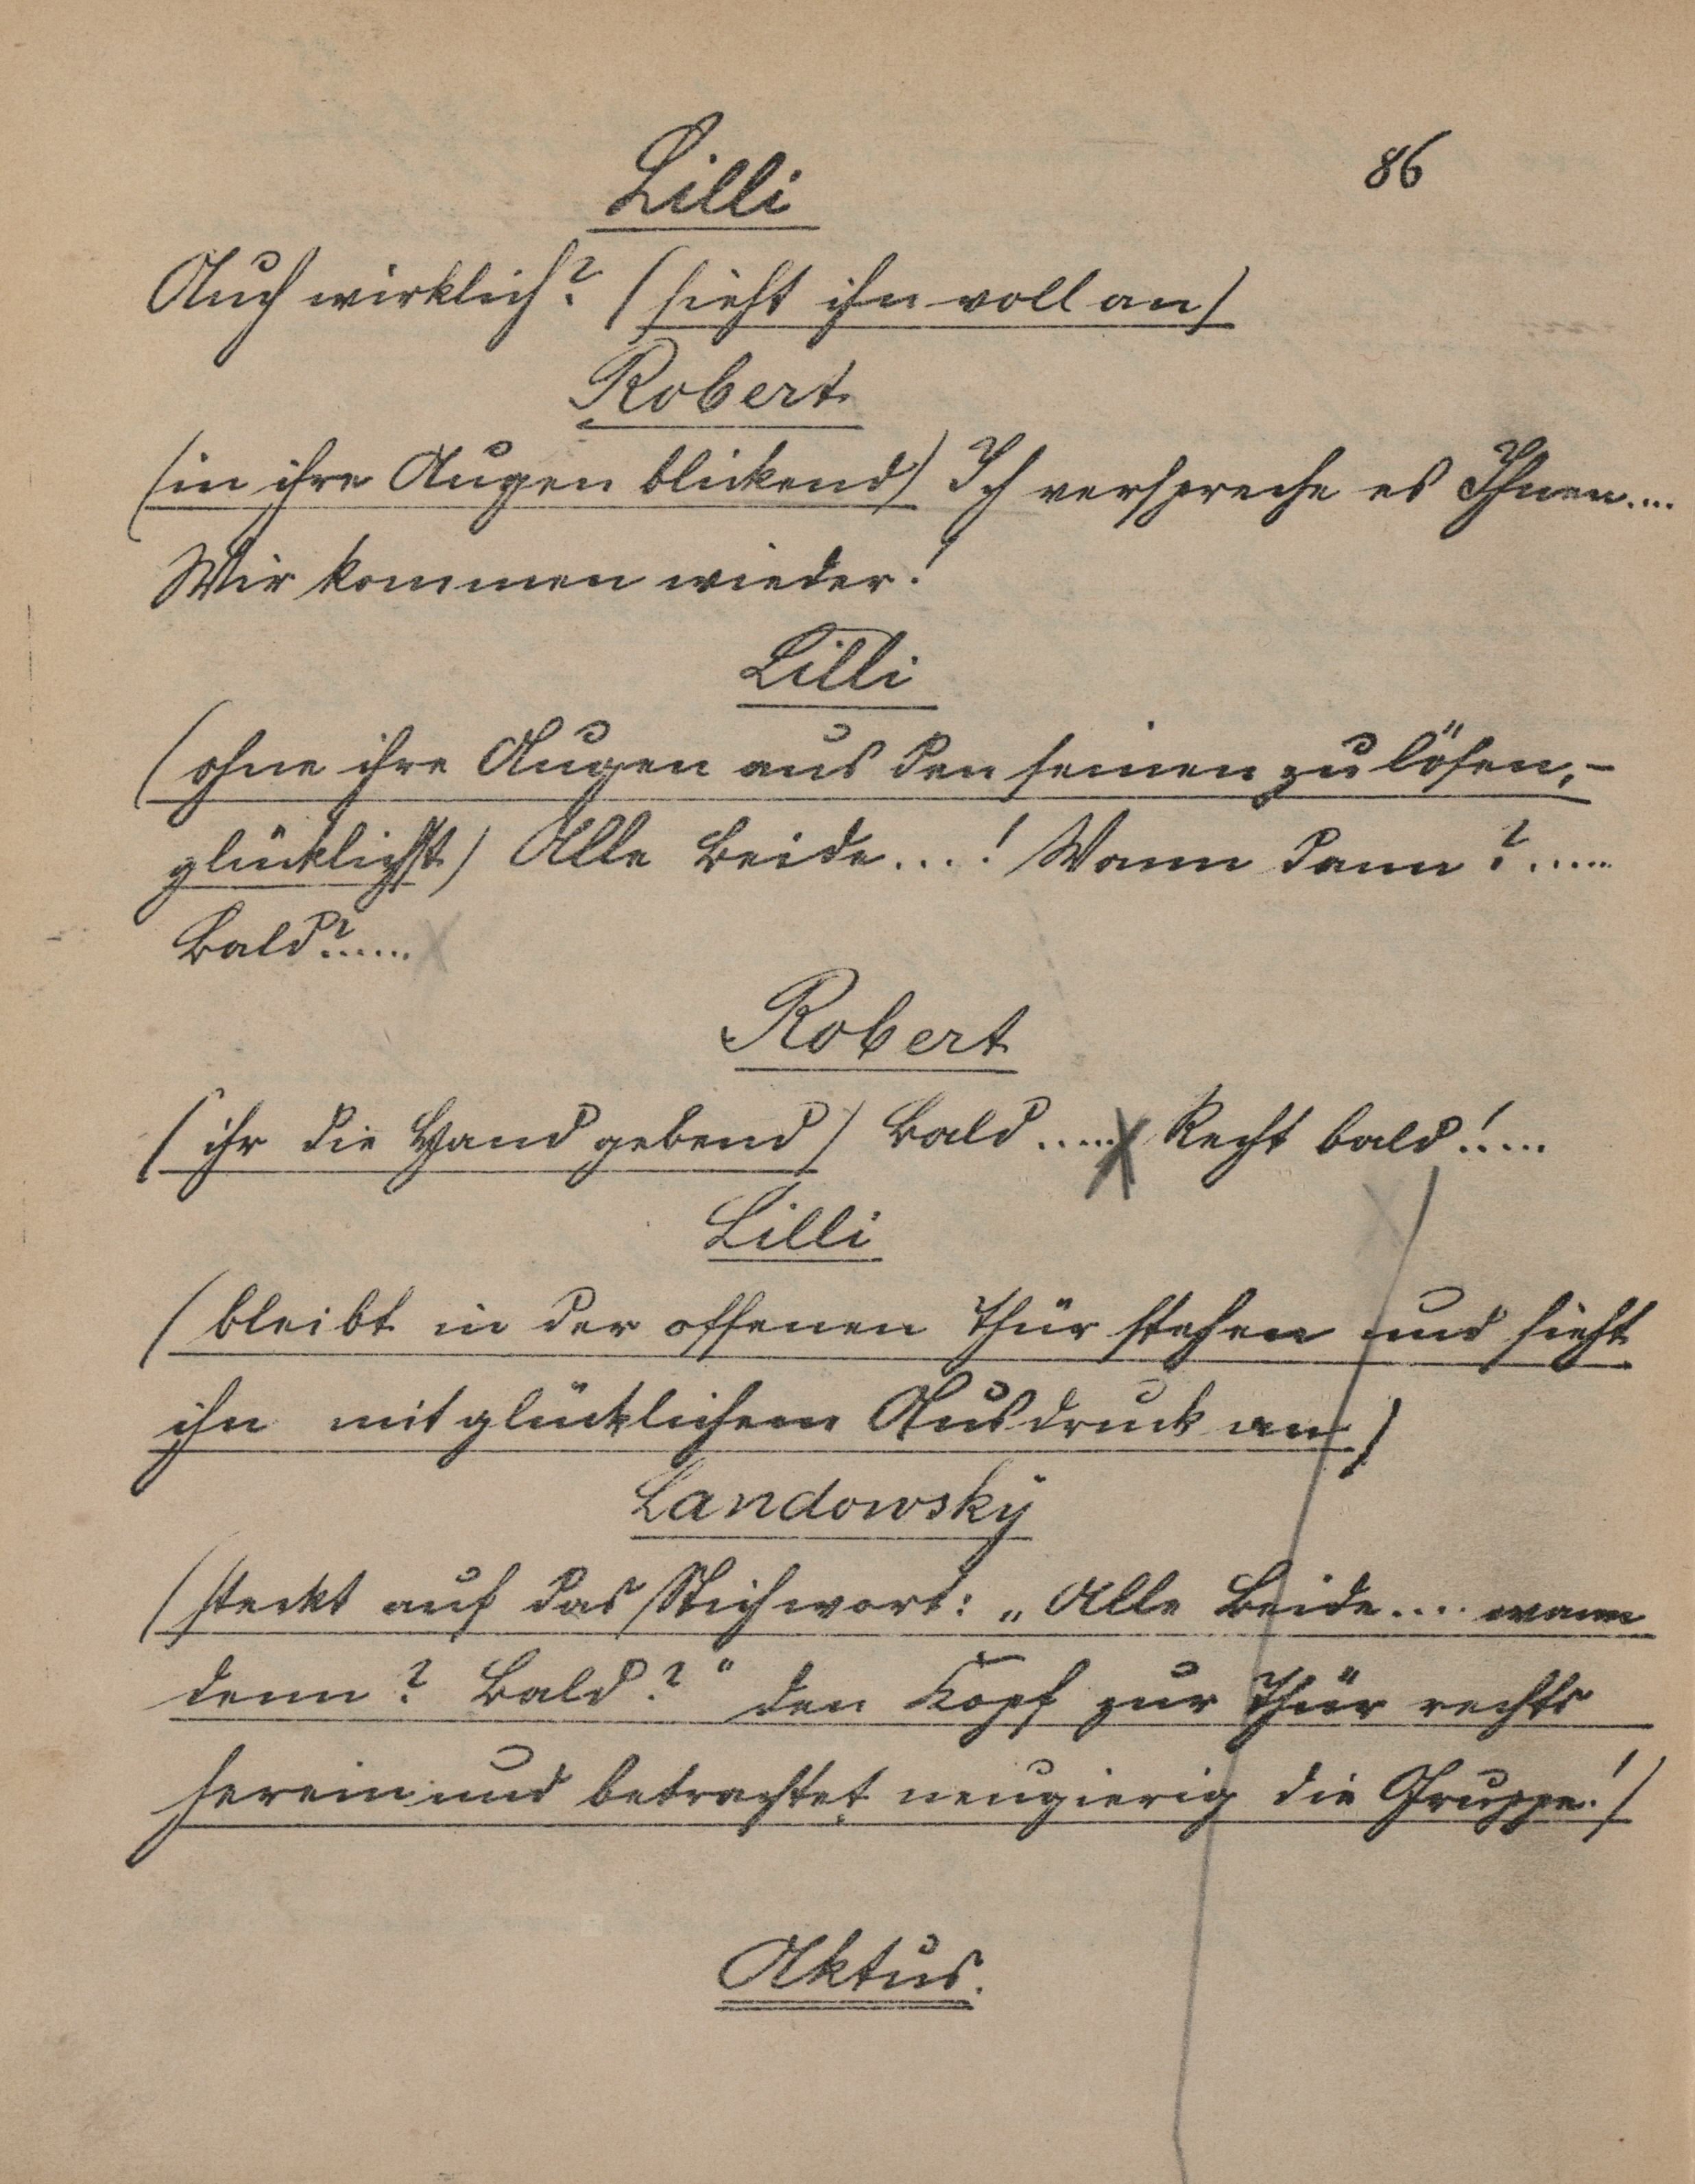 86
Lilli
Auch wirklich? (sieht ihn voll an)
Robert
(in ihre Augen blickend) Ich verspreche es Ihnen....
Wir kommen wieder!
Lilli
(ohne ihre Augen aus den seinen zu lösen,-
glücklichst) Alle Beide...! Wann denn?.....
Bald?.....
Robert
(ihr die Hand gebend) Bald..... Recht bald!....
Lilli
(bleibt in der offenen Thür stehen und sieht
ihn mit glücklichem Ausdruck an)
Landowsky
(steckt auf das Stichwort: „Alle Beide.... wann
denn? Bald?“ den Kopf zur Thür rechts
herein und betrachtet neugierig die Gruppe!)
Aktus.